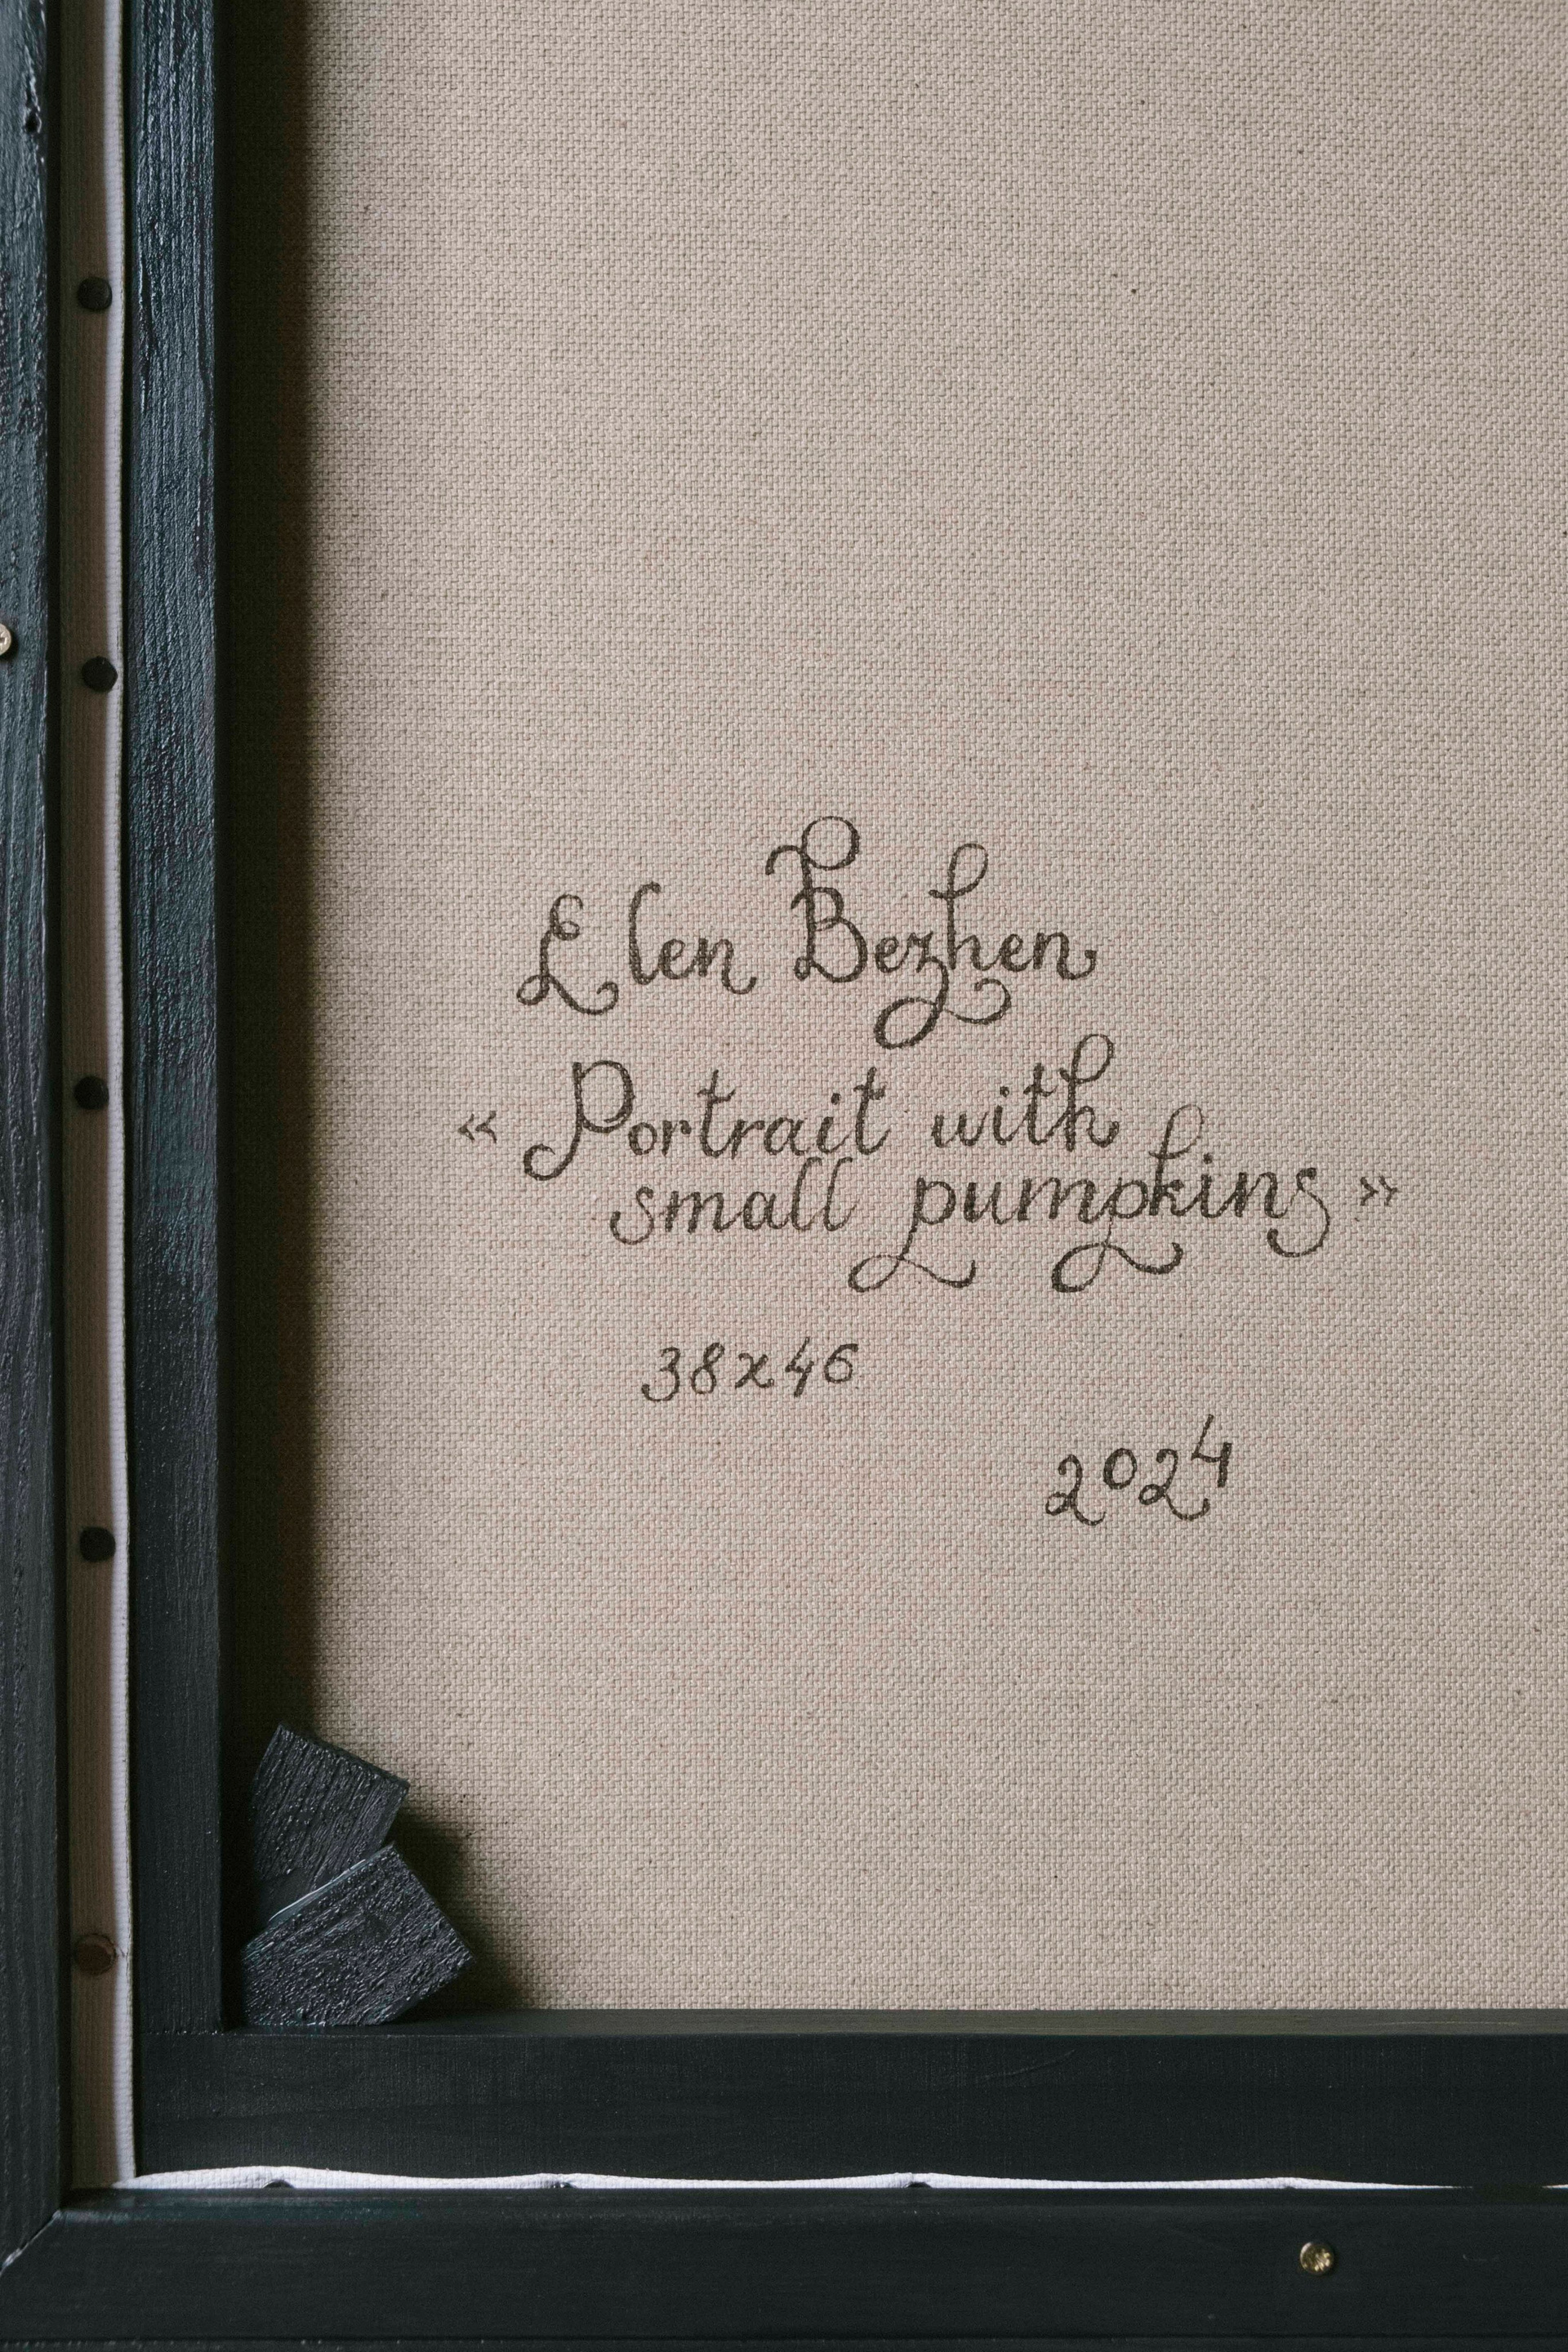 Elen Bezhen
« Portrait with
small pumpkins »
38x46
2024